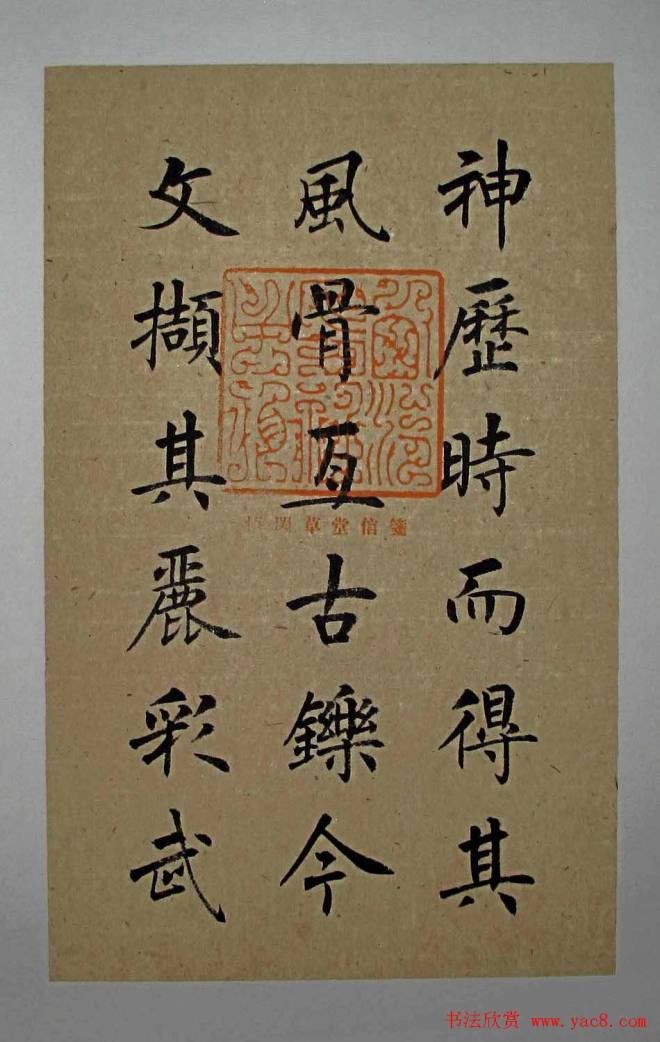 神歷時而得其
風骨互古鑠今
文擷其麗彩武
草堂信箋
书法欣赏 www.yac8.com